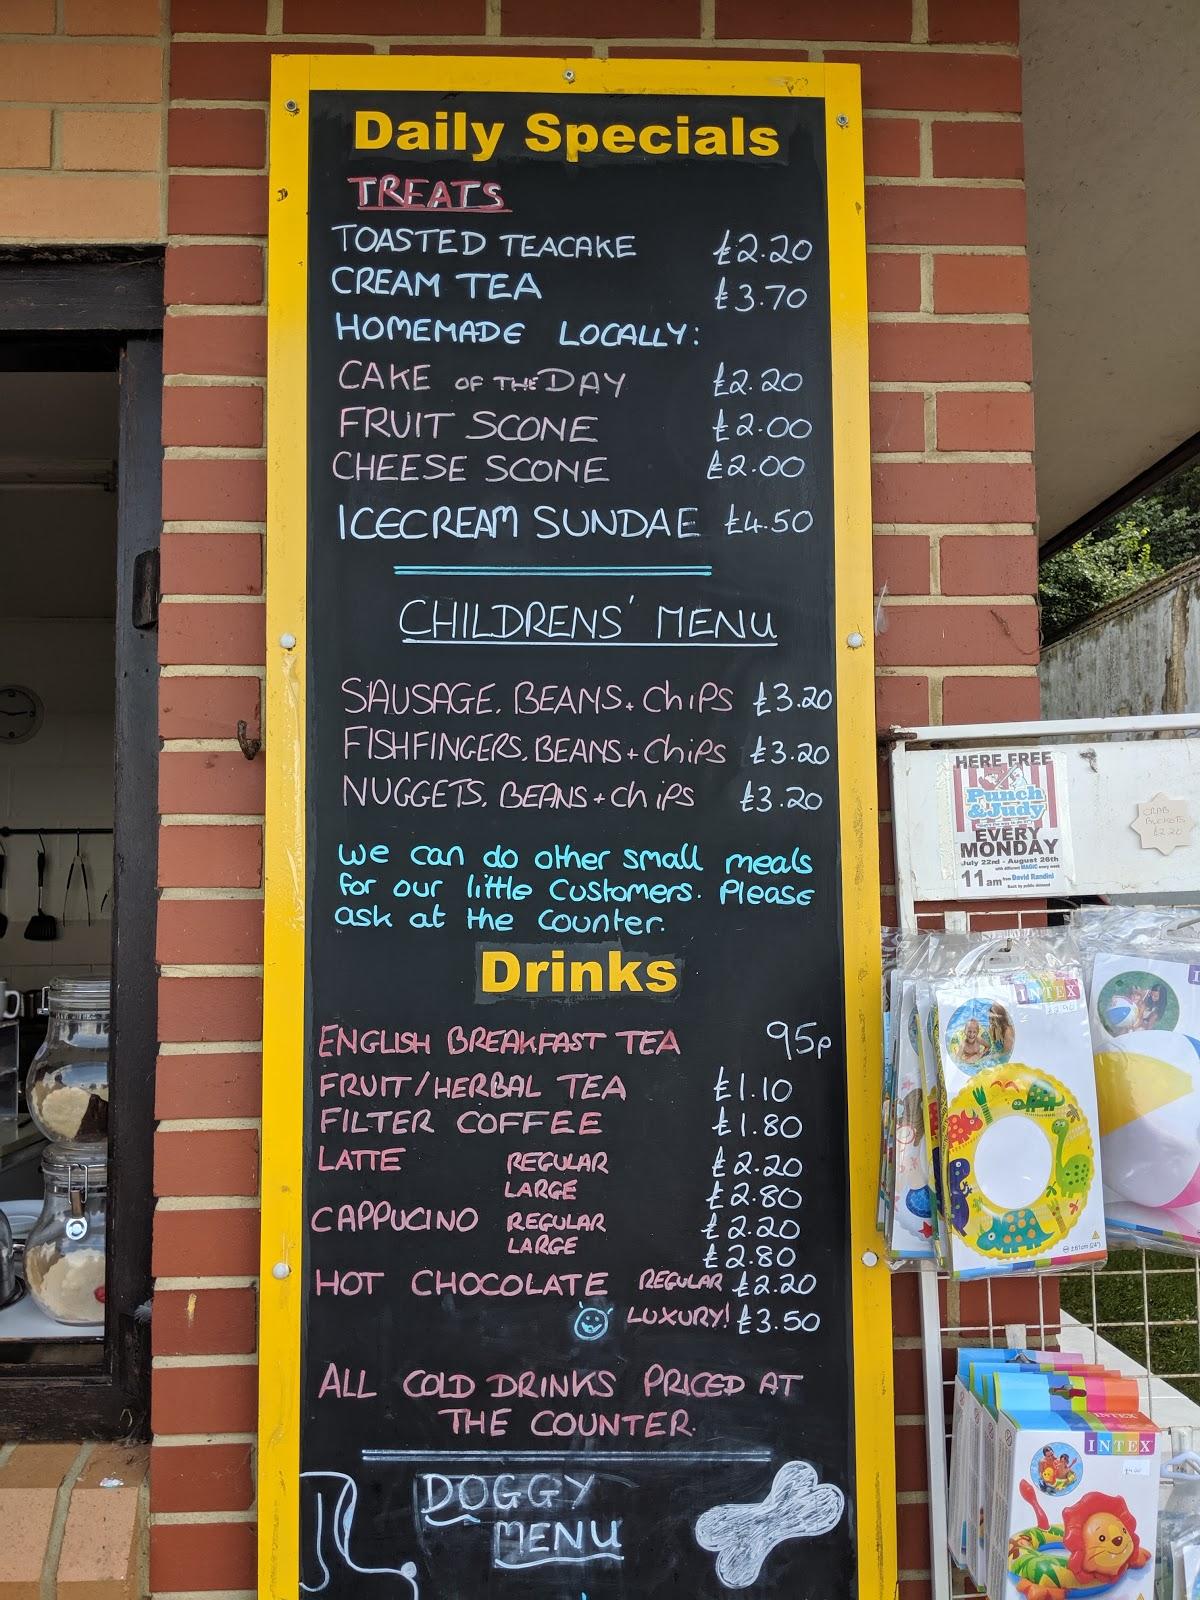 Daily Specials
TREATS
TOASTED TEACAKE £2.20
CREAM TEA £3.70
HOMEMADE LOCALLY:
CAKE OF THE DAY £2.20
FRUIT SCONE £2.00
CHEESE SCONE £2.00
ICECREAM SUNDAE £4.50
CHILDRENS' MENU
SAUSAGE, BEANS + ChiPS £3.20
FISHFINGERS, BEANS + ChiPS £3.20
NUGGETS, BEANS + ChiPS £3.20
we can do other small meals
for our little Customers. Please
ask at the Counter.
Drinks
ENGLISH BREAKFAST TEA 95p
FRUIT/HERBAL TEA £1.10
FILTER COFFEE £1.80
LATTE REGULAR £2.20
LARGE £2.80
CAPPUCINO REGULAR £2.20
LARGE £2.80
HOT CHOCOLATE REGULAR £2.20
LUXURY! £3.50
ALL COLD DRINKS PRICED AT
THE COUNTER.
DOGGY
MENU
HERE FREE
Punch
& Judy
EVERY
MONDAY
July 22nd - August 26th
with different MAGIC every week
11am from David Randini
Back by public demand
CRAB
BUCKETS
£2.20
INTEX
61cm (24")
INTEX
INTEX